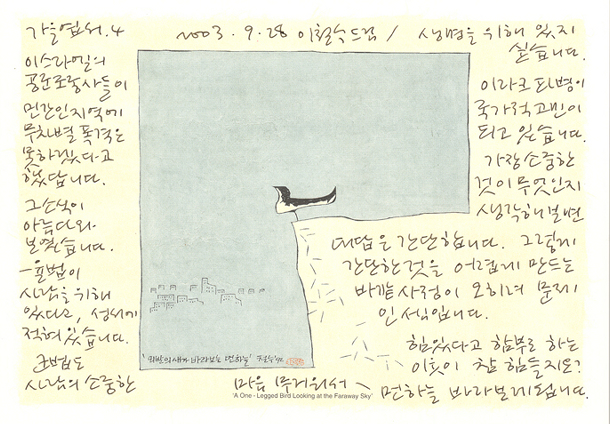 가을엽서. 4
2003. 9. 28 이철수드림 /
이스라엘의
공군조종사들이
민간인지역에
무차별 폭격은
못하겠다고
했답니다.
그 소식이
아름다와
보였습니다.
율법이
사람을 위해
있다고, 성서에
적혀있습니다.
군법도
사람의 소중한
생명을 위해 있지
싶습니다.
이라크 파병이
국가적 고민이
되고 있습니다.
가장 소중한
것이 무엇인지
생각해 보면
대답은 간단합니다. 그렇게
간단한 것을 어렵게 만드는
바깥 사정이 오히려 문제
인 셈입니다.
힘있다고 함부로 하는
이웃이 참 힘들지요?
마음 무거워서 먼하늘 바라보게 됩니다.
'외발의 새가 바라보는 먼하늘'
'A One - Legged Bird Looking at the Faraway Sky'